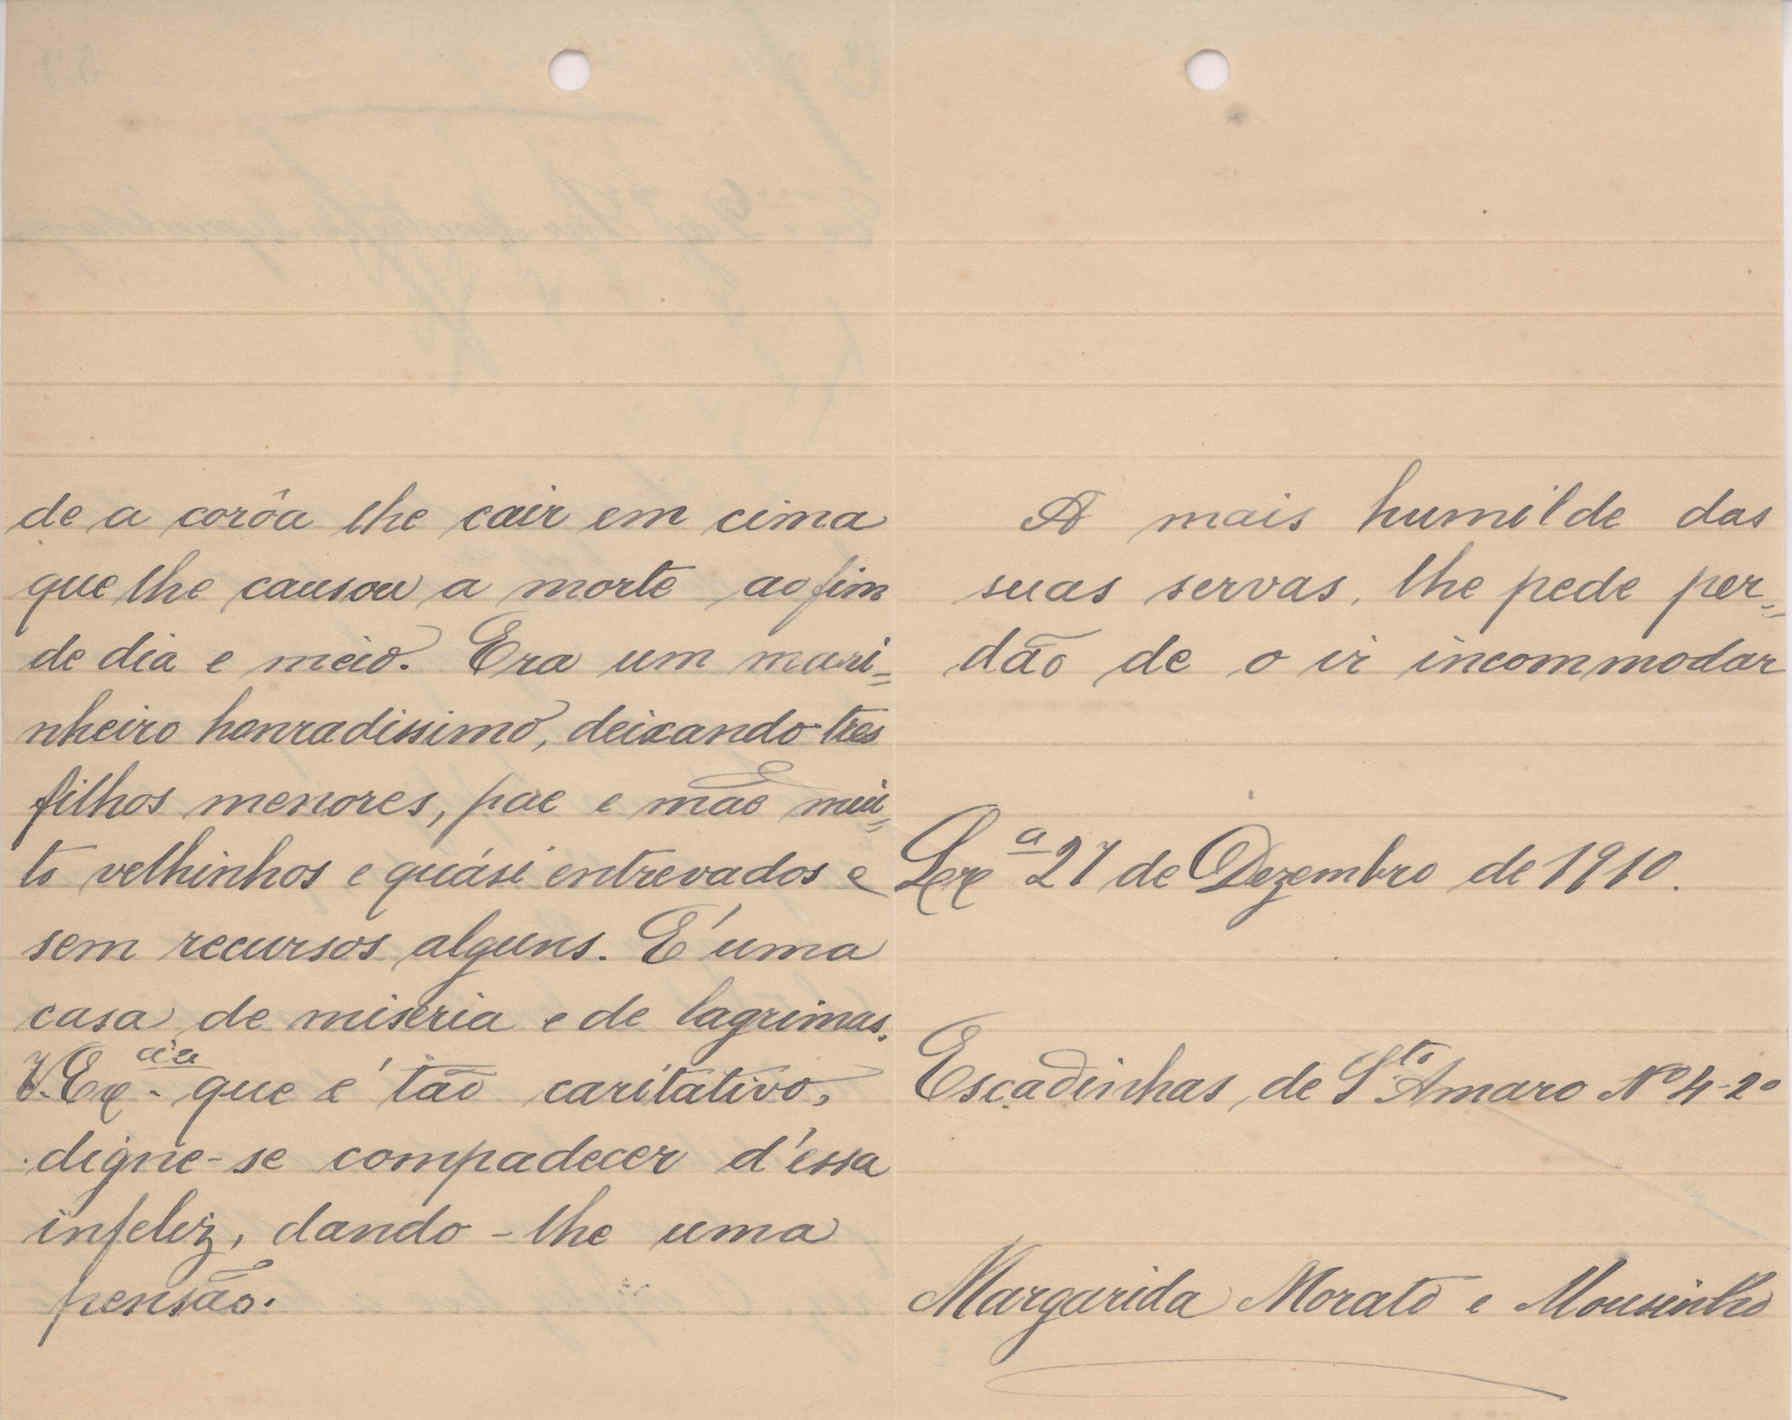 de a corôa lhe cair em cima
que lhe causou a morte ao fim
de dia e meio. Era um mari=
nheiro honradissimo, deixando tres
filhos menores, pae e mãe mui=
to velhinhos e quási entrevados e
sem recursos alguns. É uma
casa de miseria e de lagrimas.
V. Ex.cia que é tão caritativo,
digne-se compadecer d'essa
infeliz, dando-lhe uma
pensão.
A mais humilde das
suas servas, lhe pede per=
dão de o ir incommodar
Lxa 27 de Dezembro de 1910.
Escadinhas de Sto Amaro No 4-2o
Margarida Morato e Mousinho